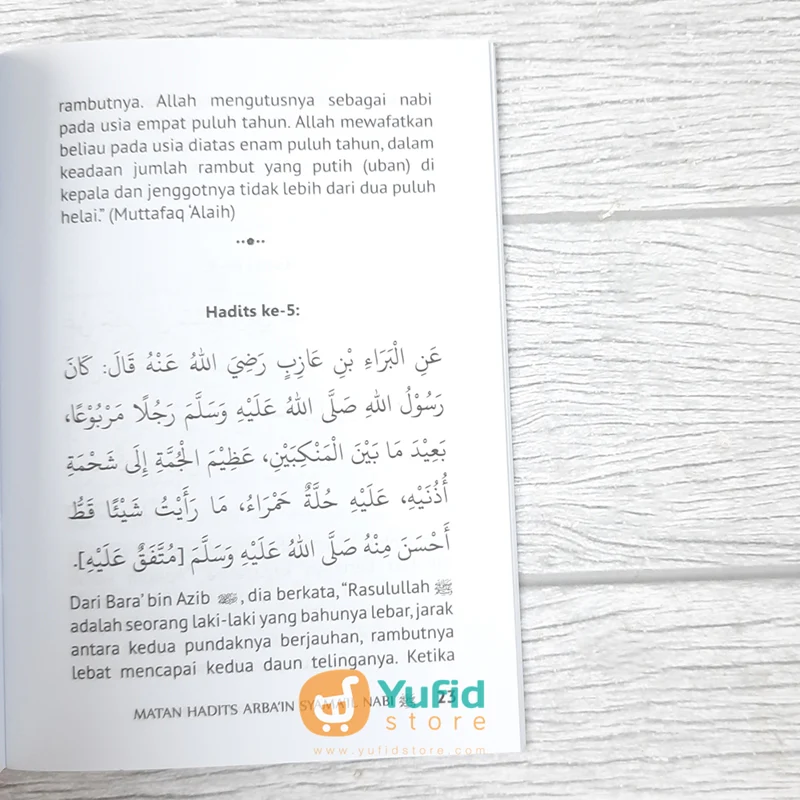 rambutnya. Allah mengutusnya sebagai nabi
pada usia empat puluh tahun. Allah mewafatkan
beliau pada usia diatas enam puluh tahun, dalam
keadaan jumlah rambut yang putih (uban) di
kepala dan jenggotnya tidak lebih dari dua puluh
helai.” (Muttafaq ‘Alaih)
Hadits ke-5:
عَنِ الْبَرَاءِ بْنِ عَازِبٍ رَضِيَ اللهُ عَنْهُ قَالَ: كَانَ
رَسُوْلُ اللهِ صَلَّى اللهُ عَلَيْهِ وَسَلَّمَ رَجُلًا مَرْبُوْعًا،
بَعِيْدَ مَا بَيْنَ الْمَنْكِبَيْنِ، عَظِيْمَ الْجُمَّةِ إِلَى شَحْمَةِ
أُذُنَيْهِ، عَلَيْهِ حُلَّةٌ حَمْرَاءُ، مَا رَأَيْتُ شَيْئًا قَطُّ
أَحْسَنَ مِنْهُ صَلَّى اللهُ عَلَيْهِ وَسَلَّمَ [مُتَّفَقٌ عَلَيْهِ].
Dari Bara’ bin Azib, dia berkata, “Rasulullah ﷺ
adalah seorang laki-laki yang bahunya lebar, jarak
antara kedua pundaknya berjauhan, rambutnya
lebat mencapai kedua daun telinganya. Ketika
MATAN HADITS ARBA’IN SYAMAIL NABI ﷺ 23
Yufid
store
www.yufidstore.com